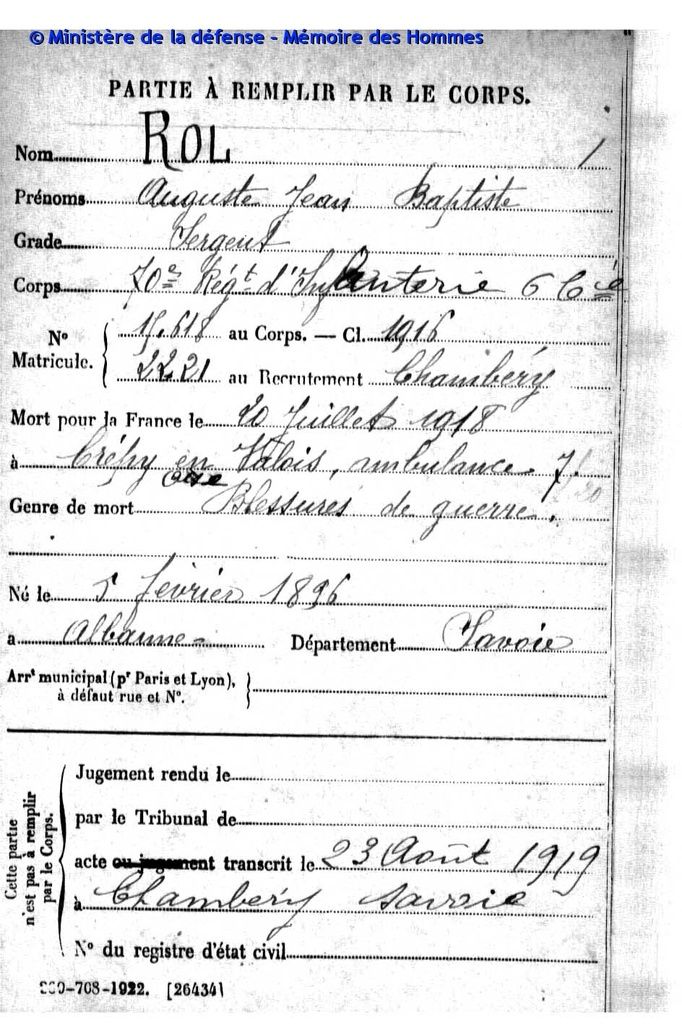 © Ministère de la défense - Mémoire des Hommes
PARTIE À REMPLIR PAR LE CORPS.
Nom ROL 1
Prénoms Auguste Jean Baptiste
Grade Sergent
Corps 70e Régt d'Infanterie 6 Cie
No Matricule. 15.618 au Corps. — Cl. 1916
2221 au Recrutement Chambéry
Mort pour la France le 20 Juillet 1918
à Crépy en Valois, ambulance 7/20
Genre de mort Blessures de guerre.
Né le 5 février 1896
a Albanne Département Savoie
Arrt municipal (pr Paris et Lyon),
à défaut rue et N°.
Cette partie
n'est pas à remplir
par le Corps.
Jugement rendu le
par le Tribunal de
acte ou jugement transcrit le 23 Août 1919
à Chambéry Savoie
N° du registre d'état civil
-708-1922. [26434]